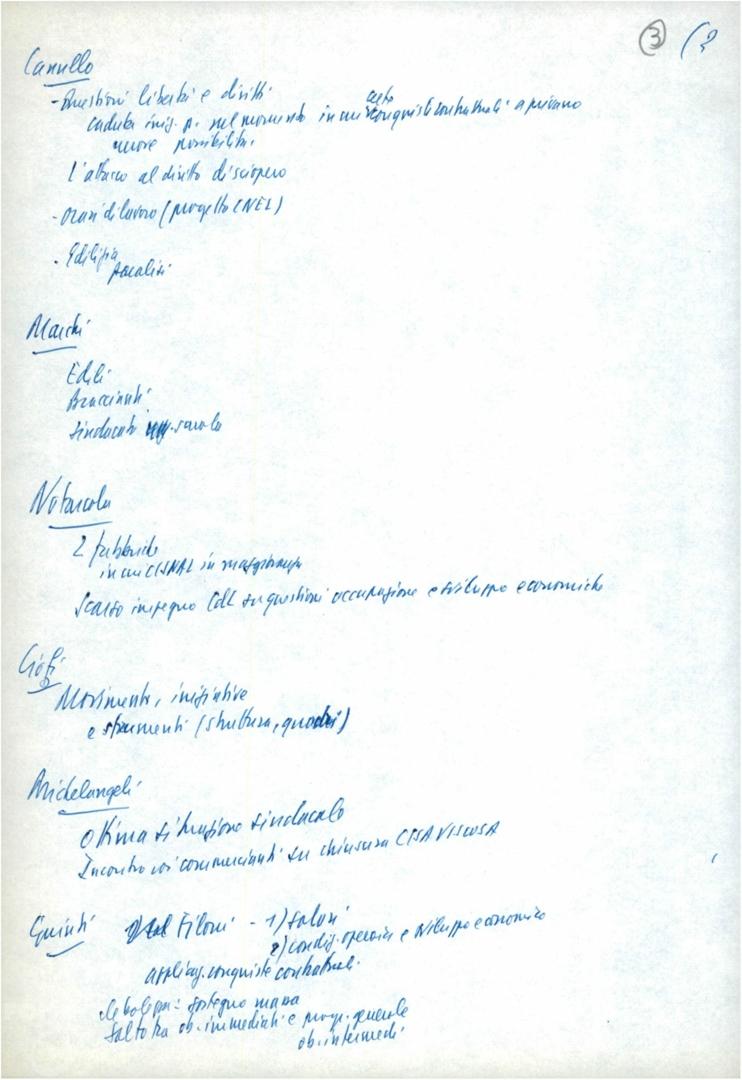 3 (?
Canullo
- Questioni libertà e diritti
caduta iniz. p. nel momento in cui certe conquiste contrattuali aprivano
nuove possibilità
l'attacco al diritto di sciopero
- orari di lavoro (progetto CNEL)
- Edilizia
paralisi
Marchi
Edili
Braccianti
Sindacati scuola
Notarcola
2 fabbriche
in cui CISNAL in maggioranza
Scarso impegno CdL su questioni occupazione e sviluppo economico
Ciofi
Movimento, iniziative
e strumenti (struttura, quadri)
Michelangeli
Ottima situazione sindacale
Incontro coi commercianti su chiusura CISA VISCOSA
Quinti Filoni - 1) salari
2) condiz. operaia e sviluppo economico
applicaz. conquiste contrattuali.
debolezza: sostegno massa
salto tra ob. immediati e progr. generale
ob. intermedi